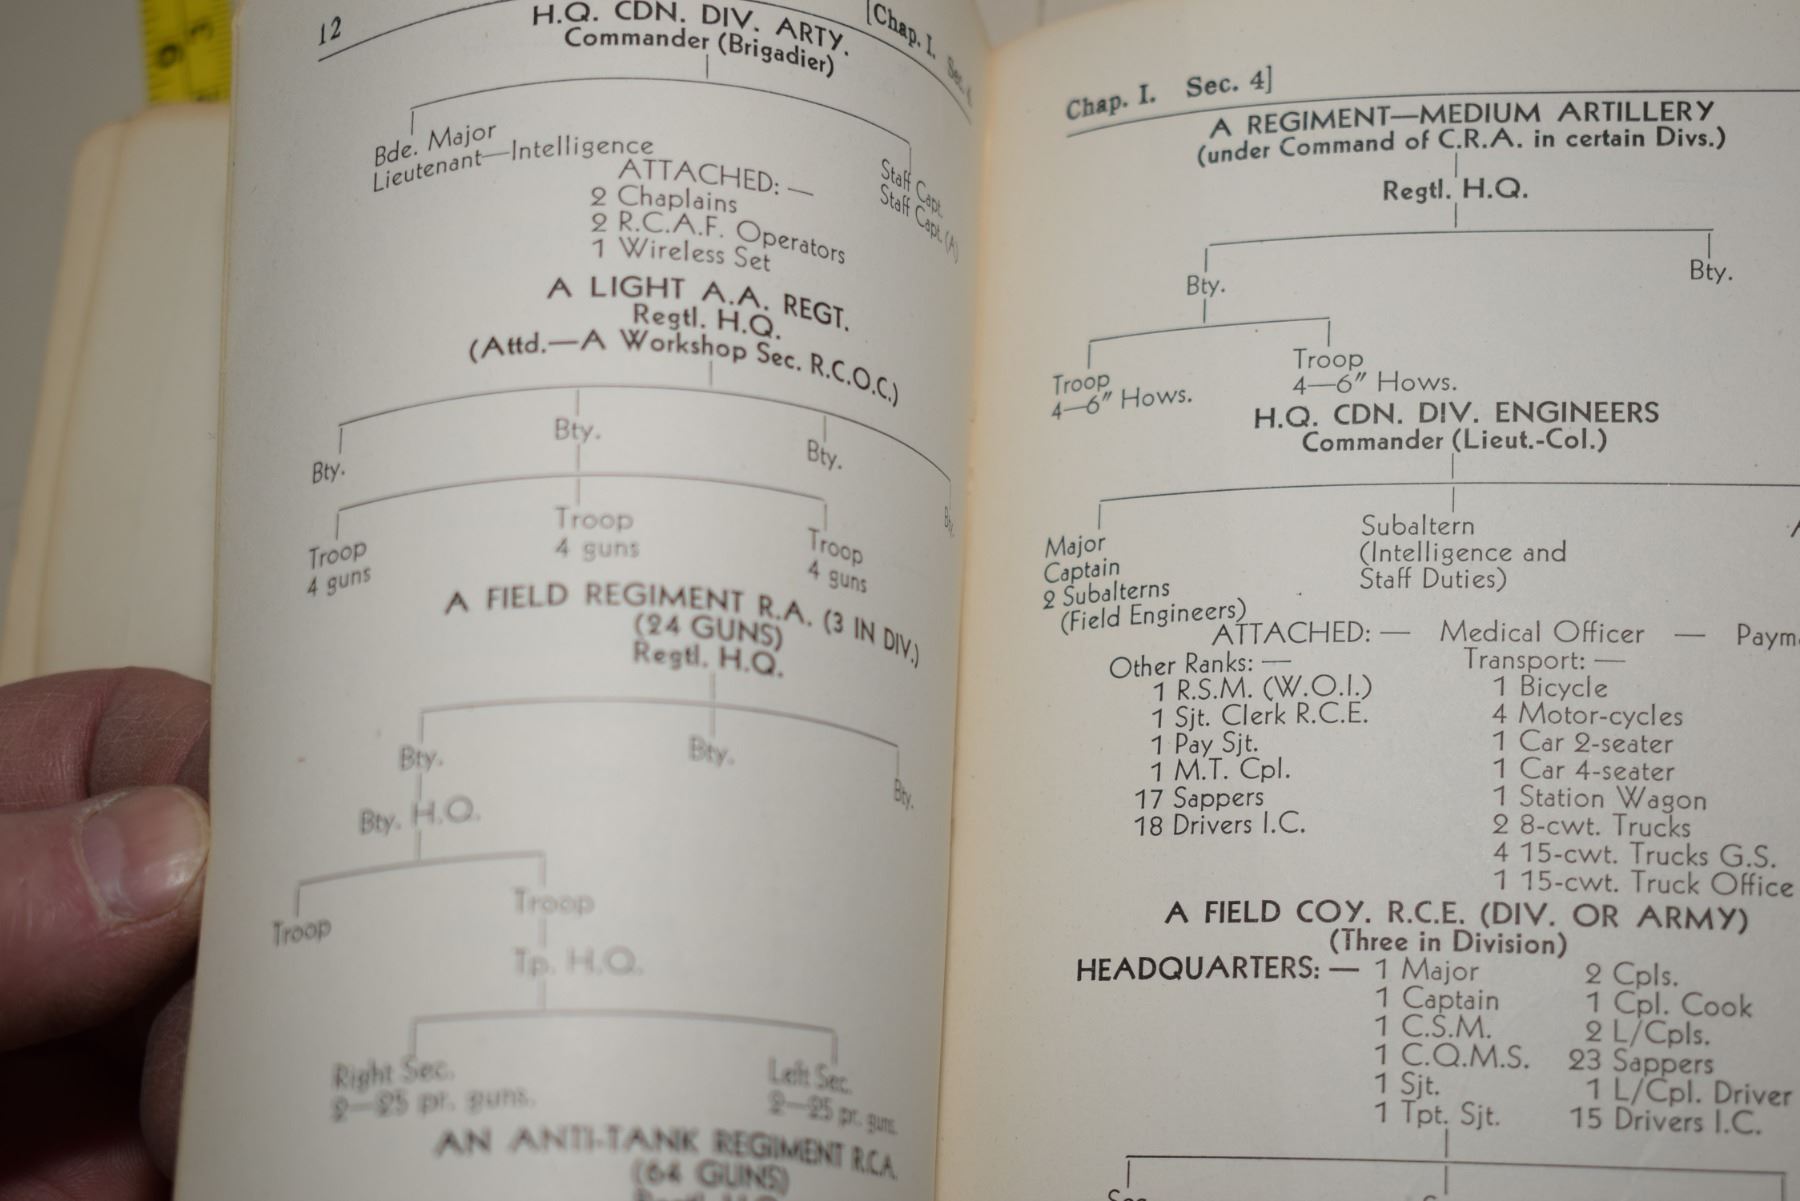 12
[Chap. I. Sec. 4
H.Q. CDN. DIV. ARTY.
Commander (Brigadier)
Bde. Major
Lieutenant—Intelligence
Staff Capt.
Staff Capt. (A)
ATTACHED: —
2 Chaplains
2 R.C.A.F. Operators
1 Wireless Set
A LIGHT A.A. REGT.
Regtl. H.Q.
(Attd.—A Workshop Sec. R.C.O.C.)
Bty. Bty. Bty. Bty.
Troop Troop Troop
4 guns 4 guns 4 guns
A FIELD REGIMENT R.A. (3 IN DIV.)
(24 GUNS)
Regtl. H.Q.
Bty. Bty. Bty.
Bty. H.Q.
Troop Troop
Tp. H.Q.
Right Sec. Left Sec.
2—25 pr. guns. 2—25 pr. guns.
AN ANTI-TANK REGIMENT R.C.A.
(64 GUNS)
Regtl. H.Q.
Chap. I. Sec. 4]
A REGIMENT—MEDIUM ARTILLERY
(under Command of C.R.A. in certain Divs.)
Regtl. H.Q.
Bty. Bty.
Troop Troop
4—6″ Hows. 4—6″ Hows.
H.Q. CDN. DIV. ENGINEERS
Commander (Lieut.-Col.)
Major
Captain
2 Subalterns
(Field Engineers)
Subaltern
(Intelligence and
Staff Duties)
ATTACHED: — Medical Officer — Paym
Other Ranks: —
1 R.S.M. (W.O.I.)
1 Sjt. Clerk R.C.E.
1 Pay Sjt.
1 M.T. Cpl.
17 Sappers
18 Drivers I.C.
Transport: —
1 Bicycle
4 Motor-cycles
1 Car 2-seater
1 Car 4-seater
1 Station Wagon
2 8-cwt. Trucks
4 15-cwt. Trucks G.S.
1 15-cwt. Truck Office
A FIELD COY. R.C.E. (DIV. OR ARMY)
(Three in Division)
HEADQUARTERS: — 1 Major 2 Cpls.
1 Captain 1 Cpl. Cook
1 C.S.M. 2 L/Cpls.
1 C.Q.M.S. 23 Sappers
1 Sjt. 1 L/Cpl. Driver
1 Tpt. Sjt. 15 Drivers I.C.